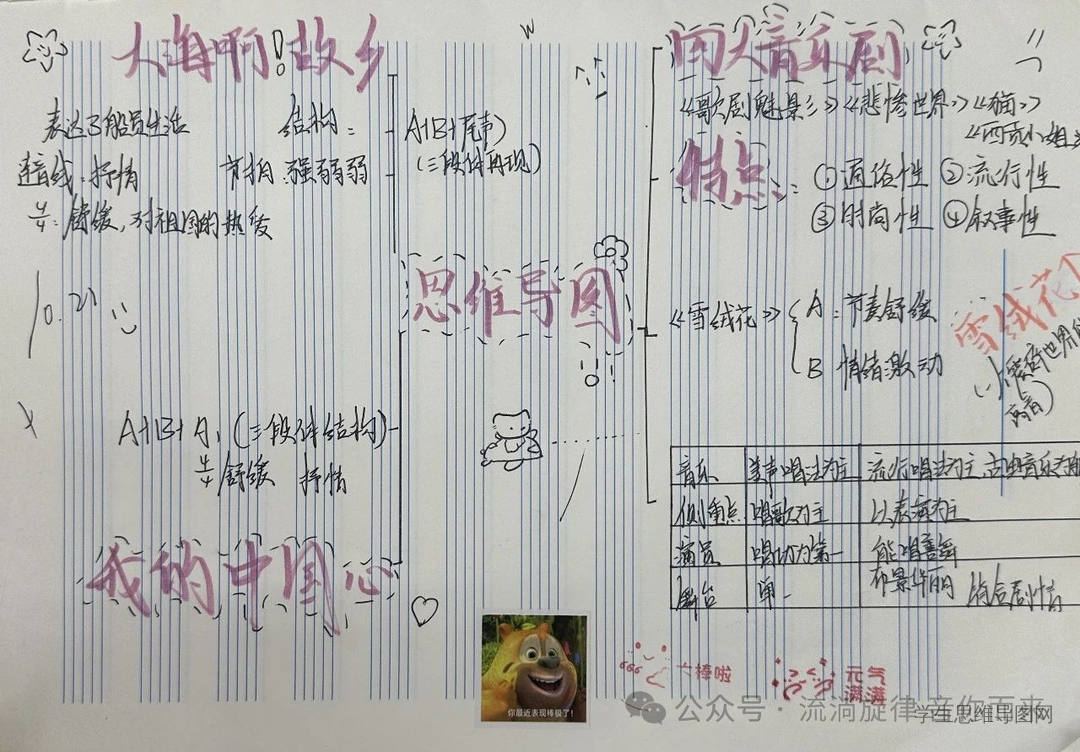 大海啊!故乡
表达了船员生活
结构:
A+B+尾声)
(三段体再现)
连音线:抒情
节拍:强弱弱
4/4:舒缓,对祖国的热爱
10.21
思维导图
A+B+A,(三段体结构)
4/4 舒缓 抒情
我的中国心
四大音乐剧
《歌剧魅影》《悲惨世界》《猫》
《西贡小姐
特点:
①通俗性 ②流行性
③时尚性 ④叙事性
《雪绒花》
A:节奏舒缓
B 情绪激动
雪绒花
高音)
音乐 美声唱法为主 流行唱法为主,古典音乐为
侧重点 唱歌为主 以表演为主
演员 唱功为第一 能唱善舞
舞台 单一 布景华丽 结合剧情
你最近表现棒极了!
666 太棒啦
元气满满
公众号·流淌旋律 音你而来
学生思维导图网